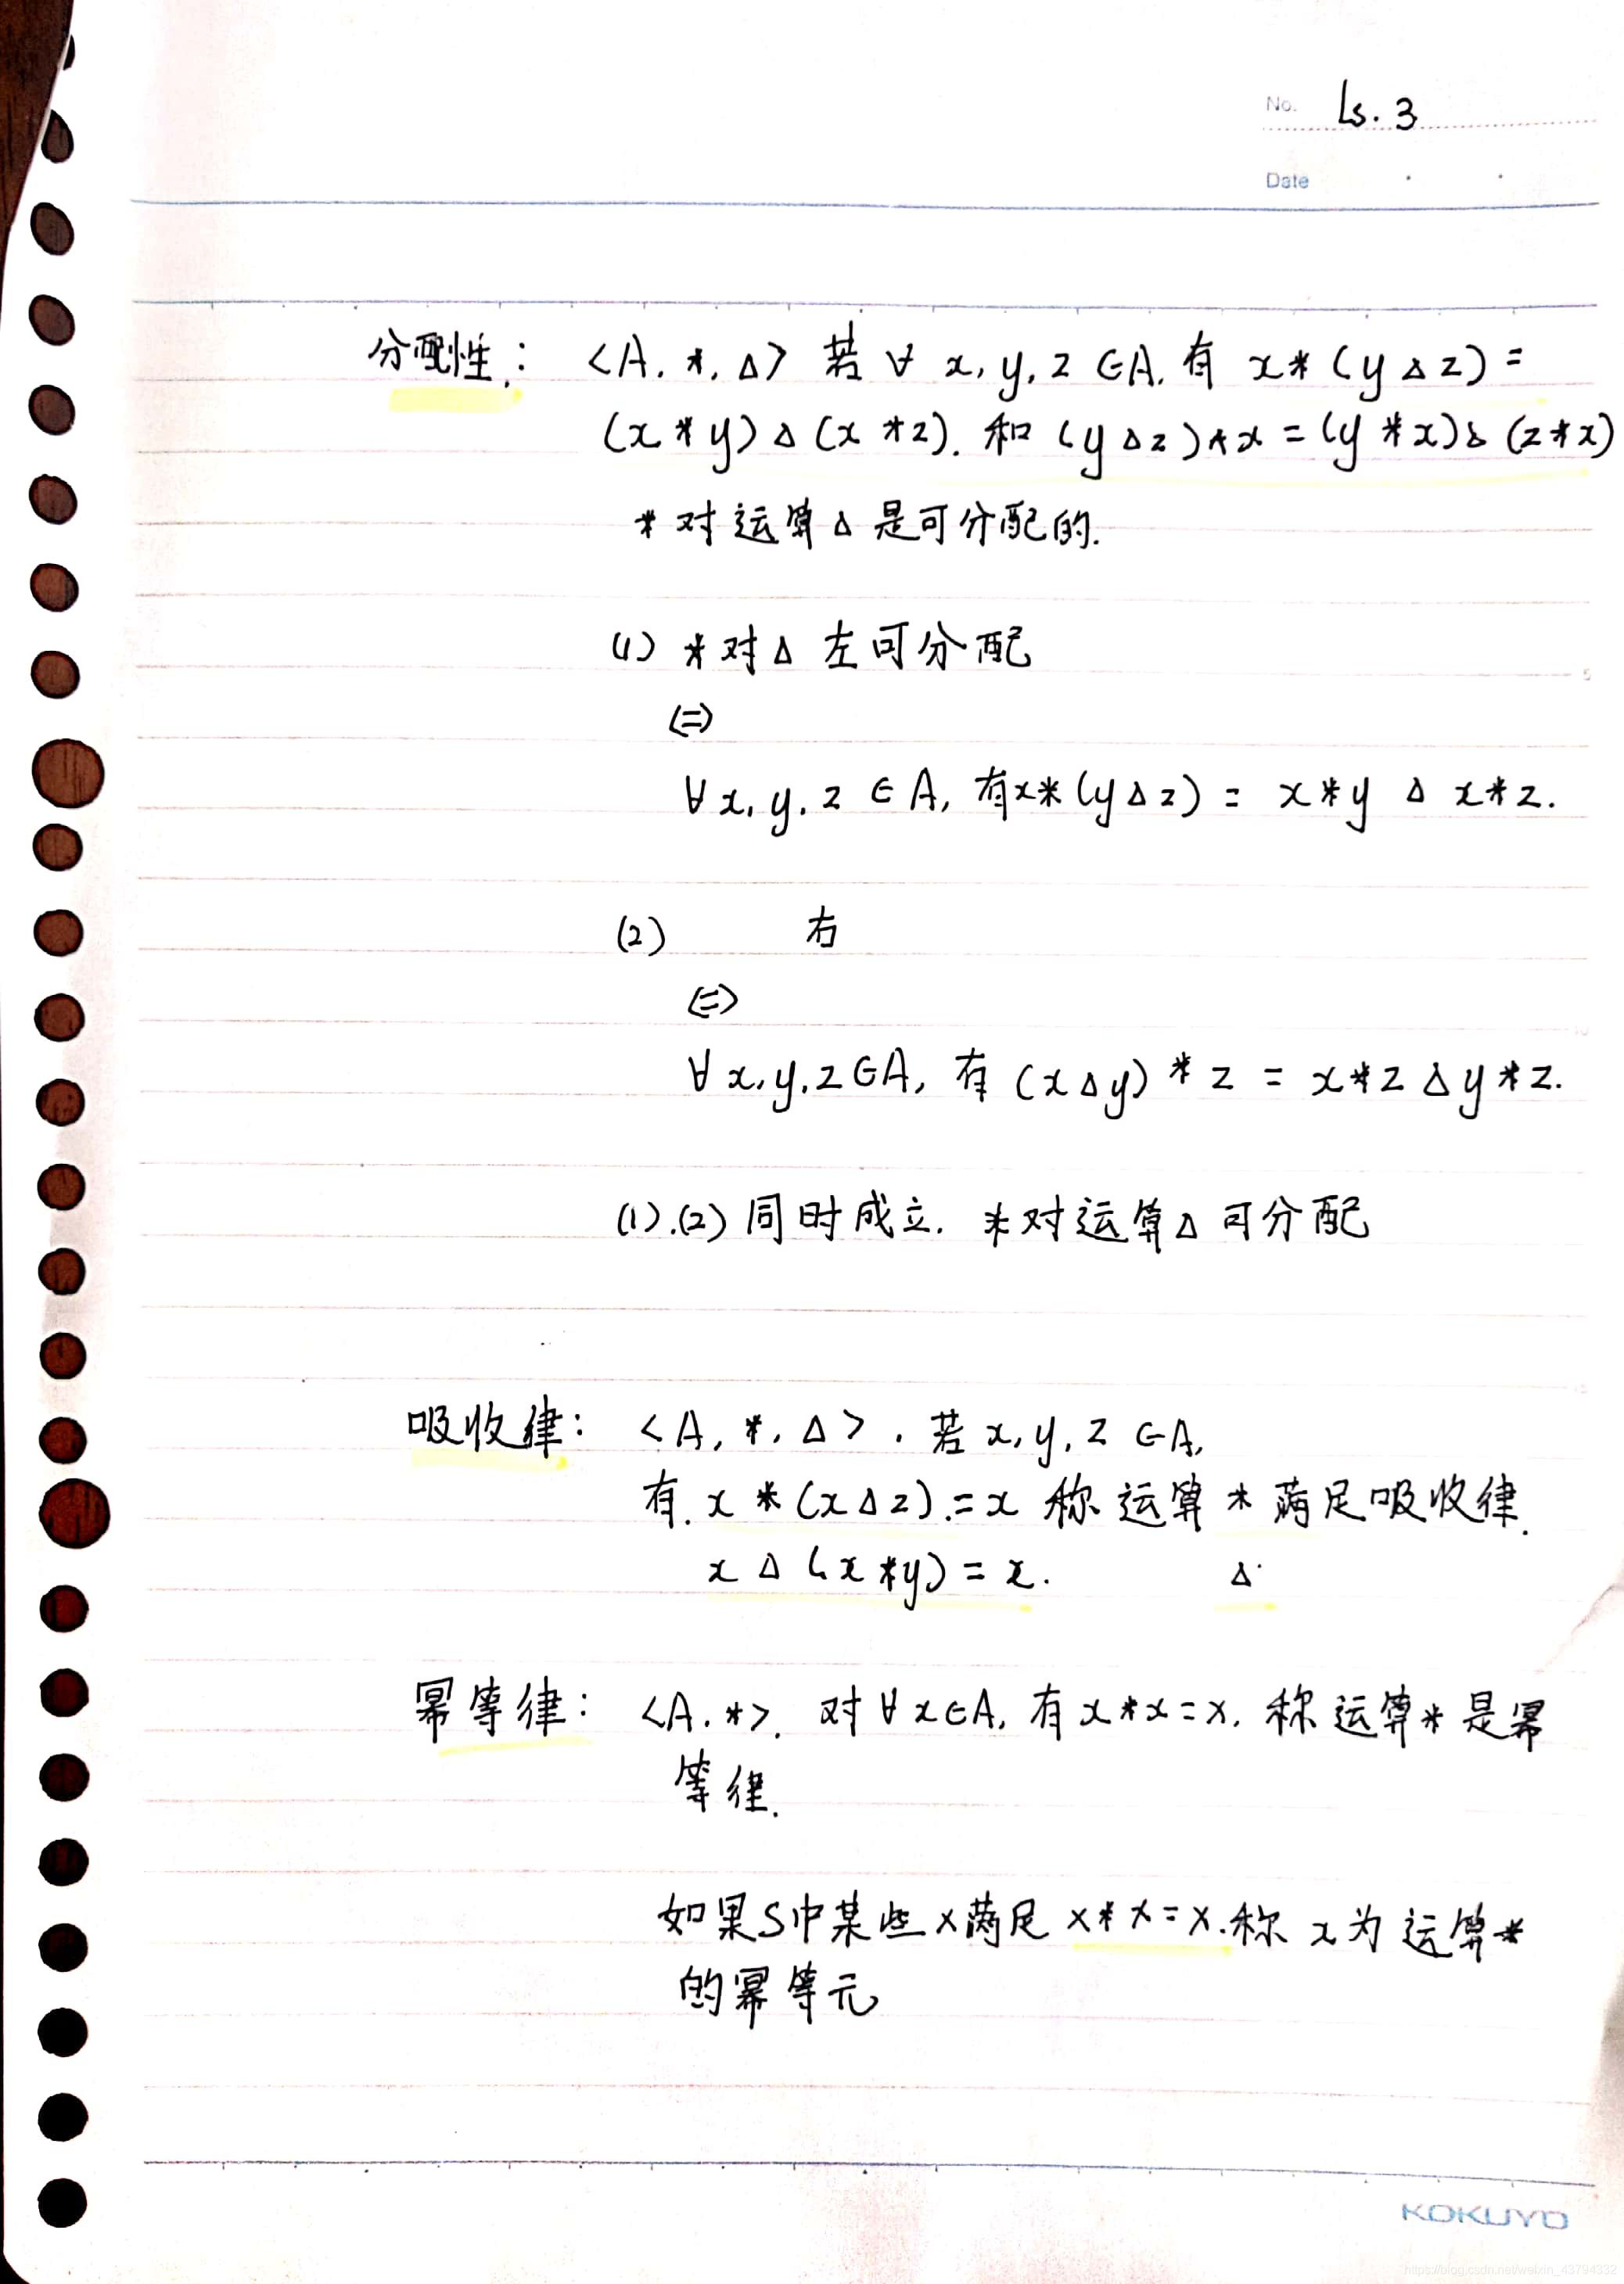 No. Ls. 3
Date
分配性: <A. *, Δ> 若 ∀ x, y, z ∈A. 有 x * (y Δ z) =
(x * y) Δ (x * z). 和 (y Δ z) * x = (y * x) Δ (z * x)
* 对运算 Δ 是可分配的.
(1) * 对 Δ 左可分配
<=>
∀ x, y, z ∈ A, 有 x * (y Δ z) = x * y Δ x * z.
(2) 右
<=>
∀ x, y, z ∈ A, 有 (x Δ y) * z = x * z Δ y * z.
(1).(2) 同时成立. * 对运算 Δ 可分配
吸收律: <A, *, Δ>. 若 x, y, z ∈ A,
有. x * (x Δ z) = x 称运算 * 满足吸收律.
x Δ (x * y) = x. Δ
幂等律: <A. *>. 对 ∀ x ∈ A, 有 x * x = x. 称运算 * 是幂
等律.
如果 S 中某些 x 满足 x * x = x. 称 x 为运算 *
的幂等元
KOKUYO
https://blog.csdn.net/weixin_43794332